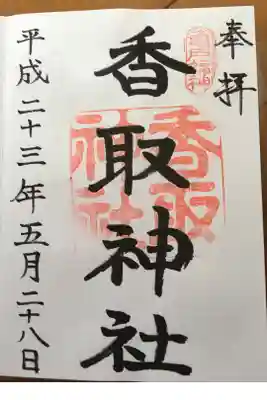 奉拝
香取神社
平成二十三年五月二十八日
香取神社